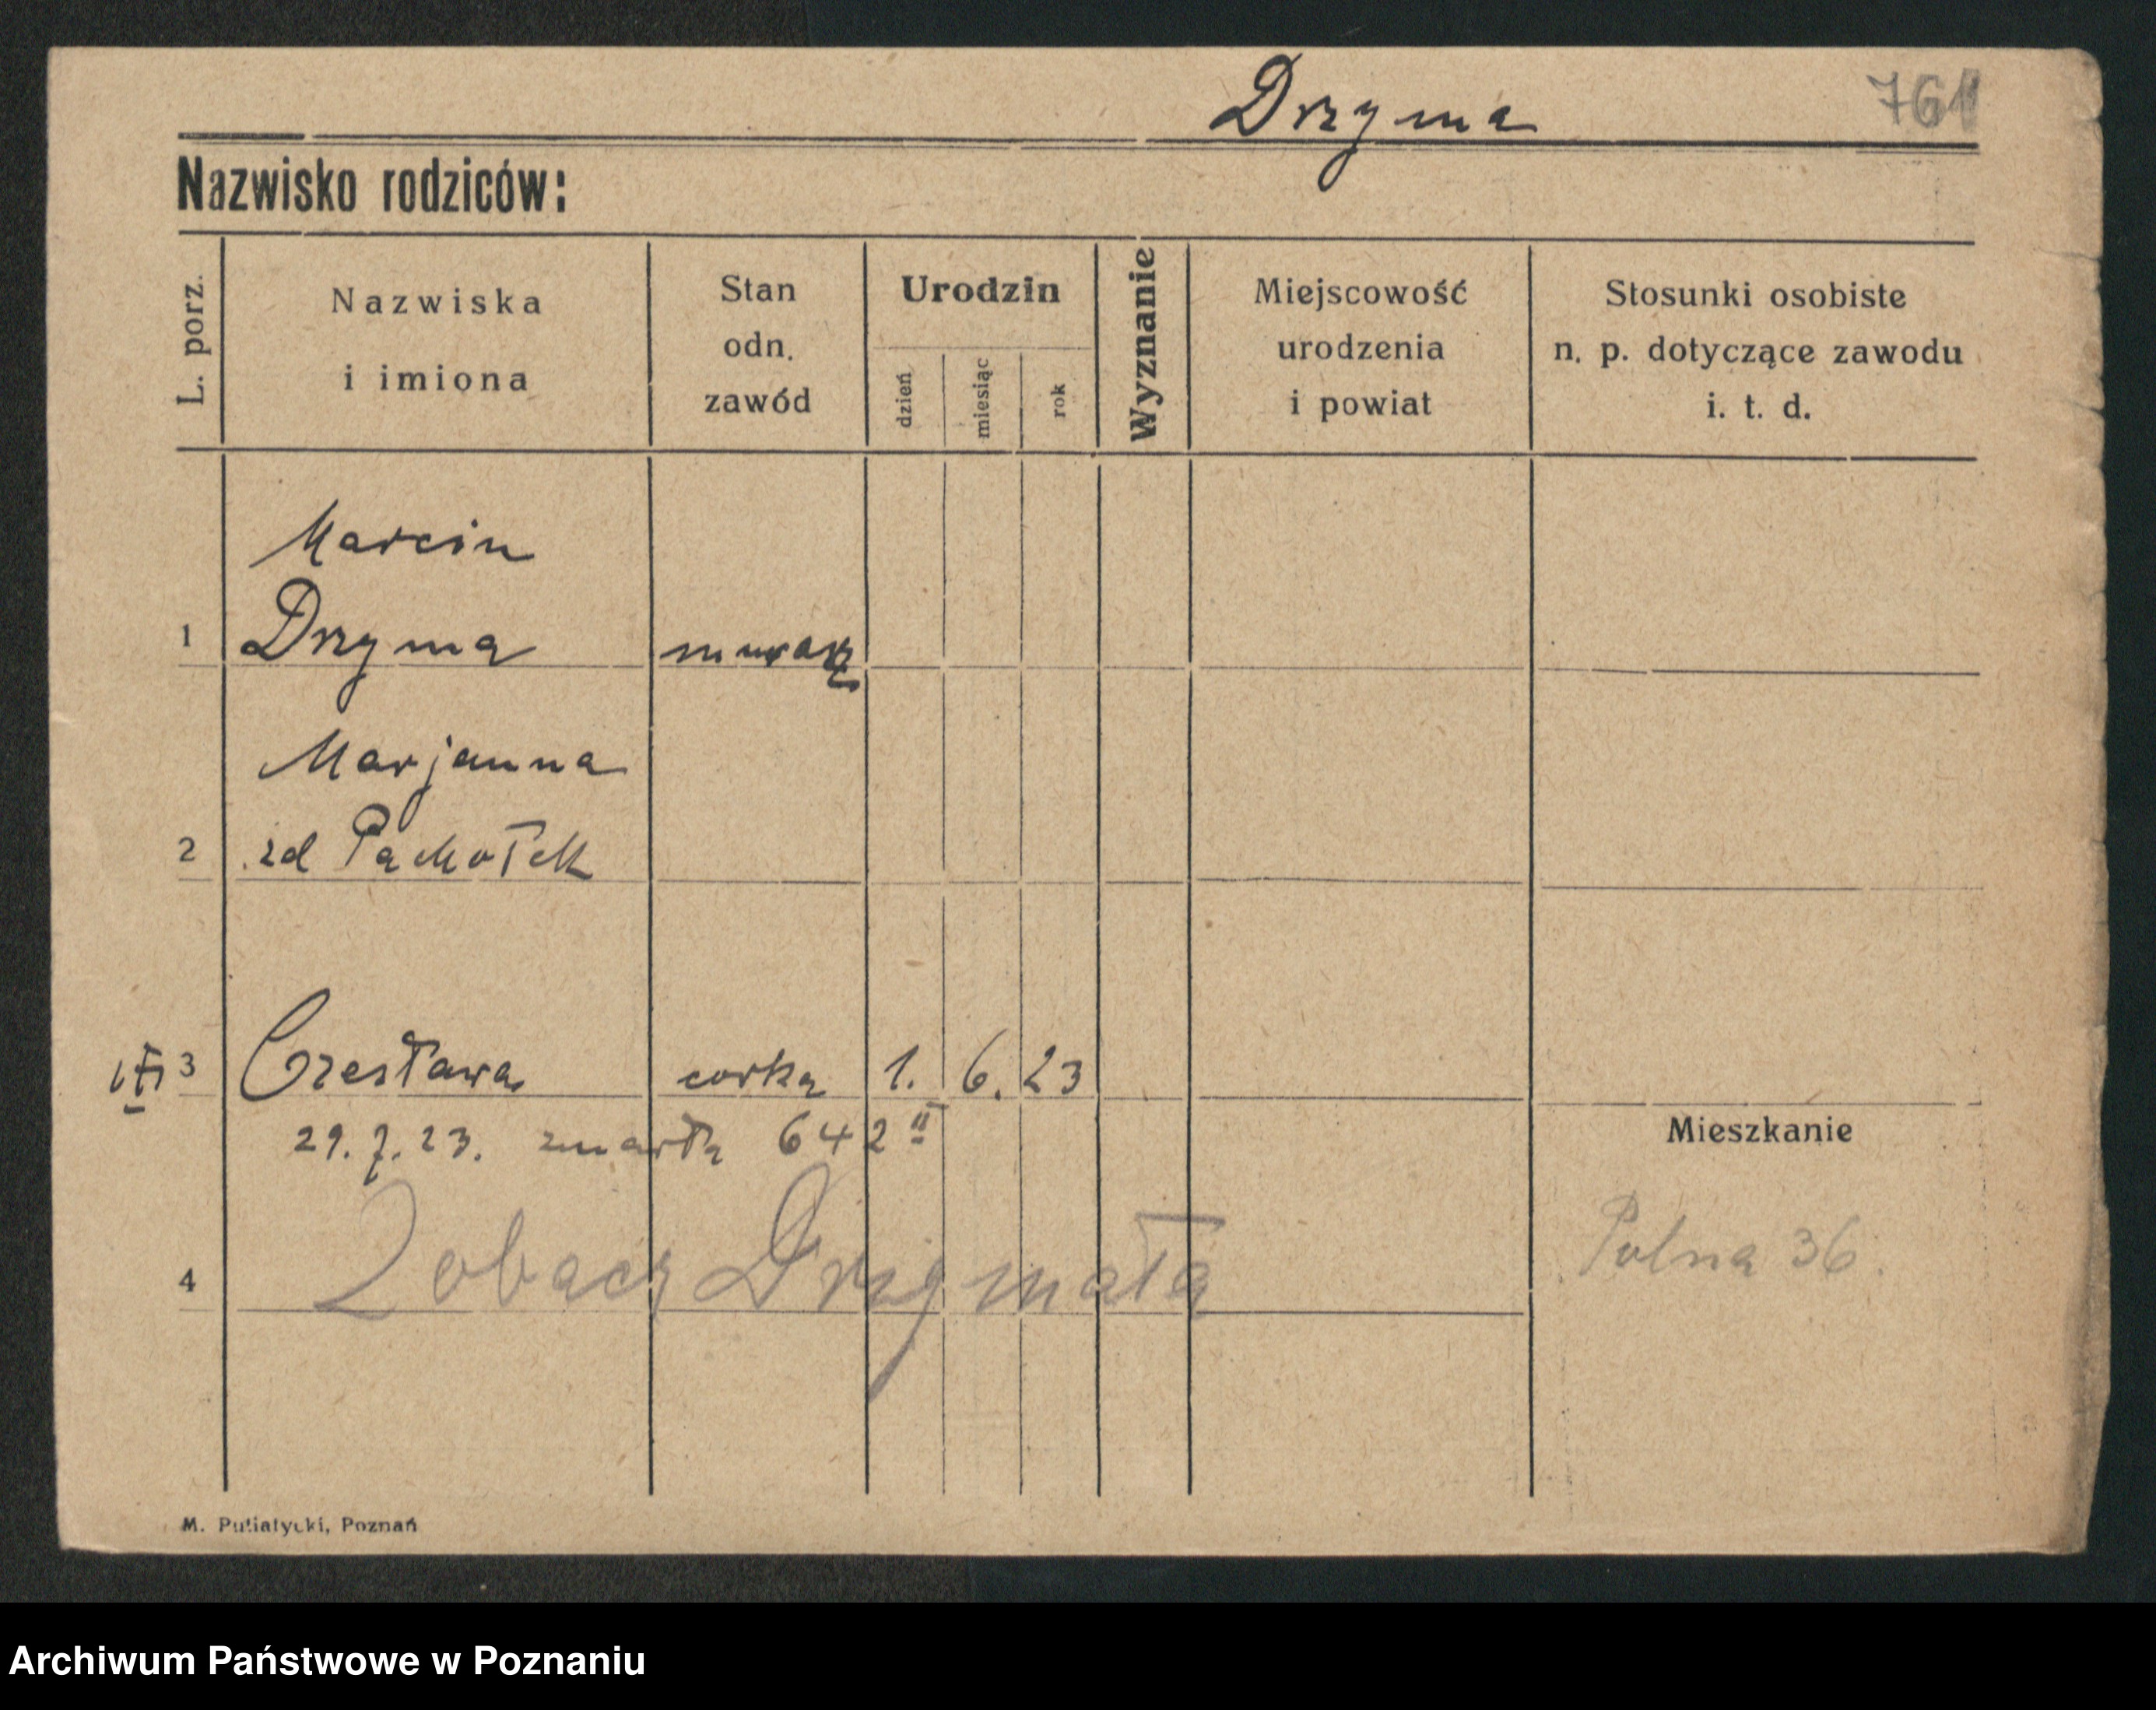 Drzyma 761
Nazwisko rodziców:
L. porz.
Nazwiska
i imiona
Stan
odn.
zawód
Urodzin
dzień
miesiąc
rok
Wyznanie
Miejscowość
urodzenia
i powiat
Stosunki osobiste
n. p. dotyczące zawodu
i. t. d.
Marcin
1 Drzyma murarz
Marjanna
2 zd Pachołek
3 Czesława corka 1. 6. 23
29. 7. 23. zmarła 642 II
Mieszkanie
4 Zobacz Drzymała
Polna 36.
M. Putiatycki, Poznań
Archiwum Państwowe w Poznaniu